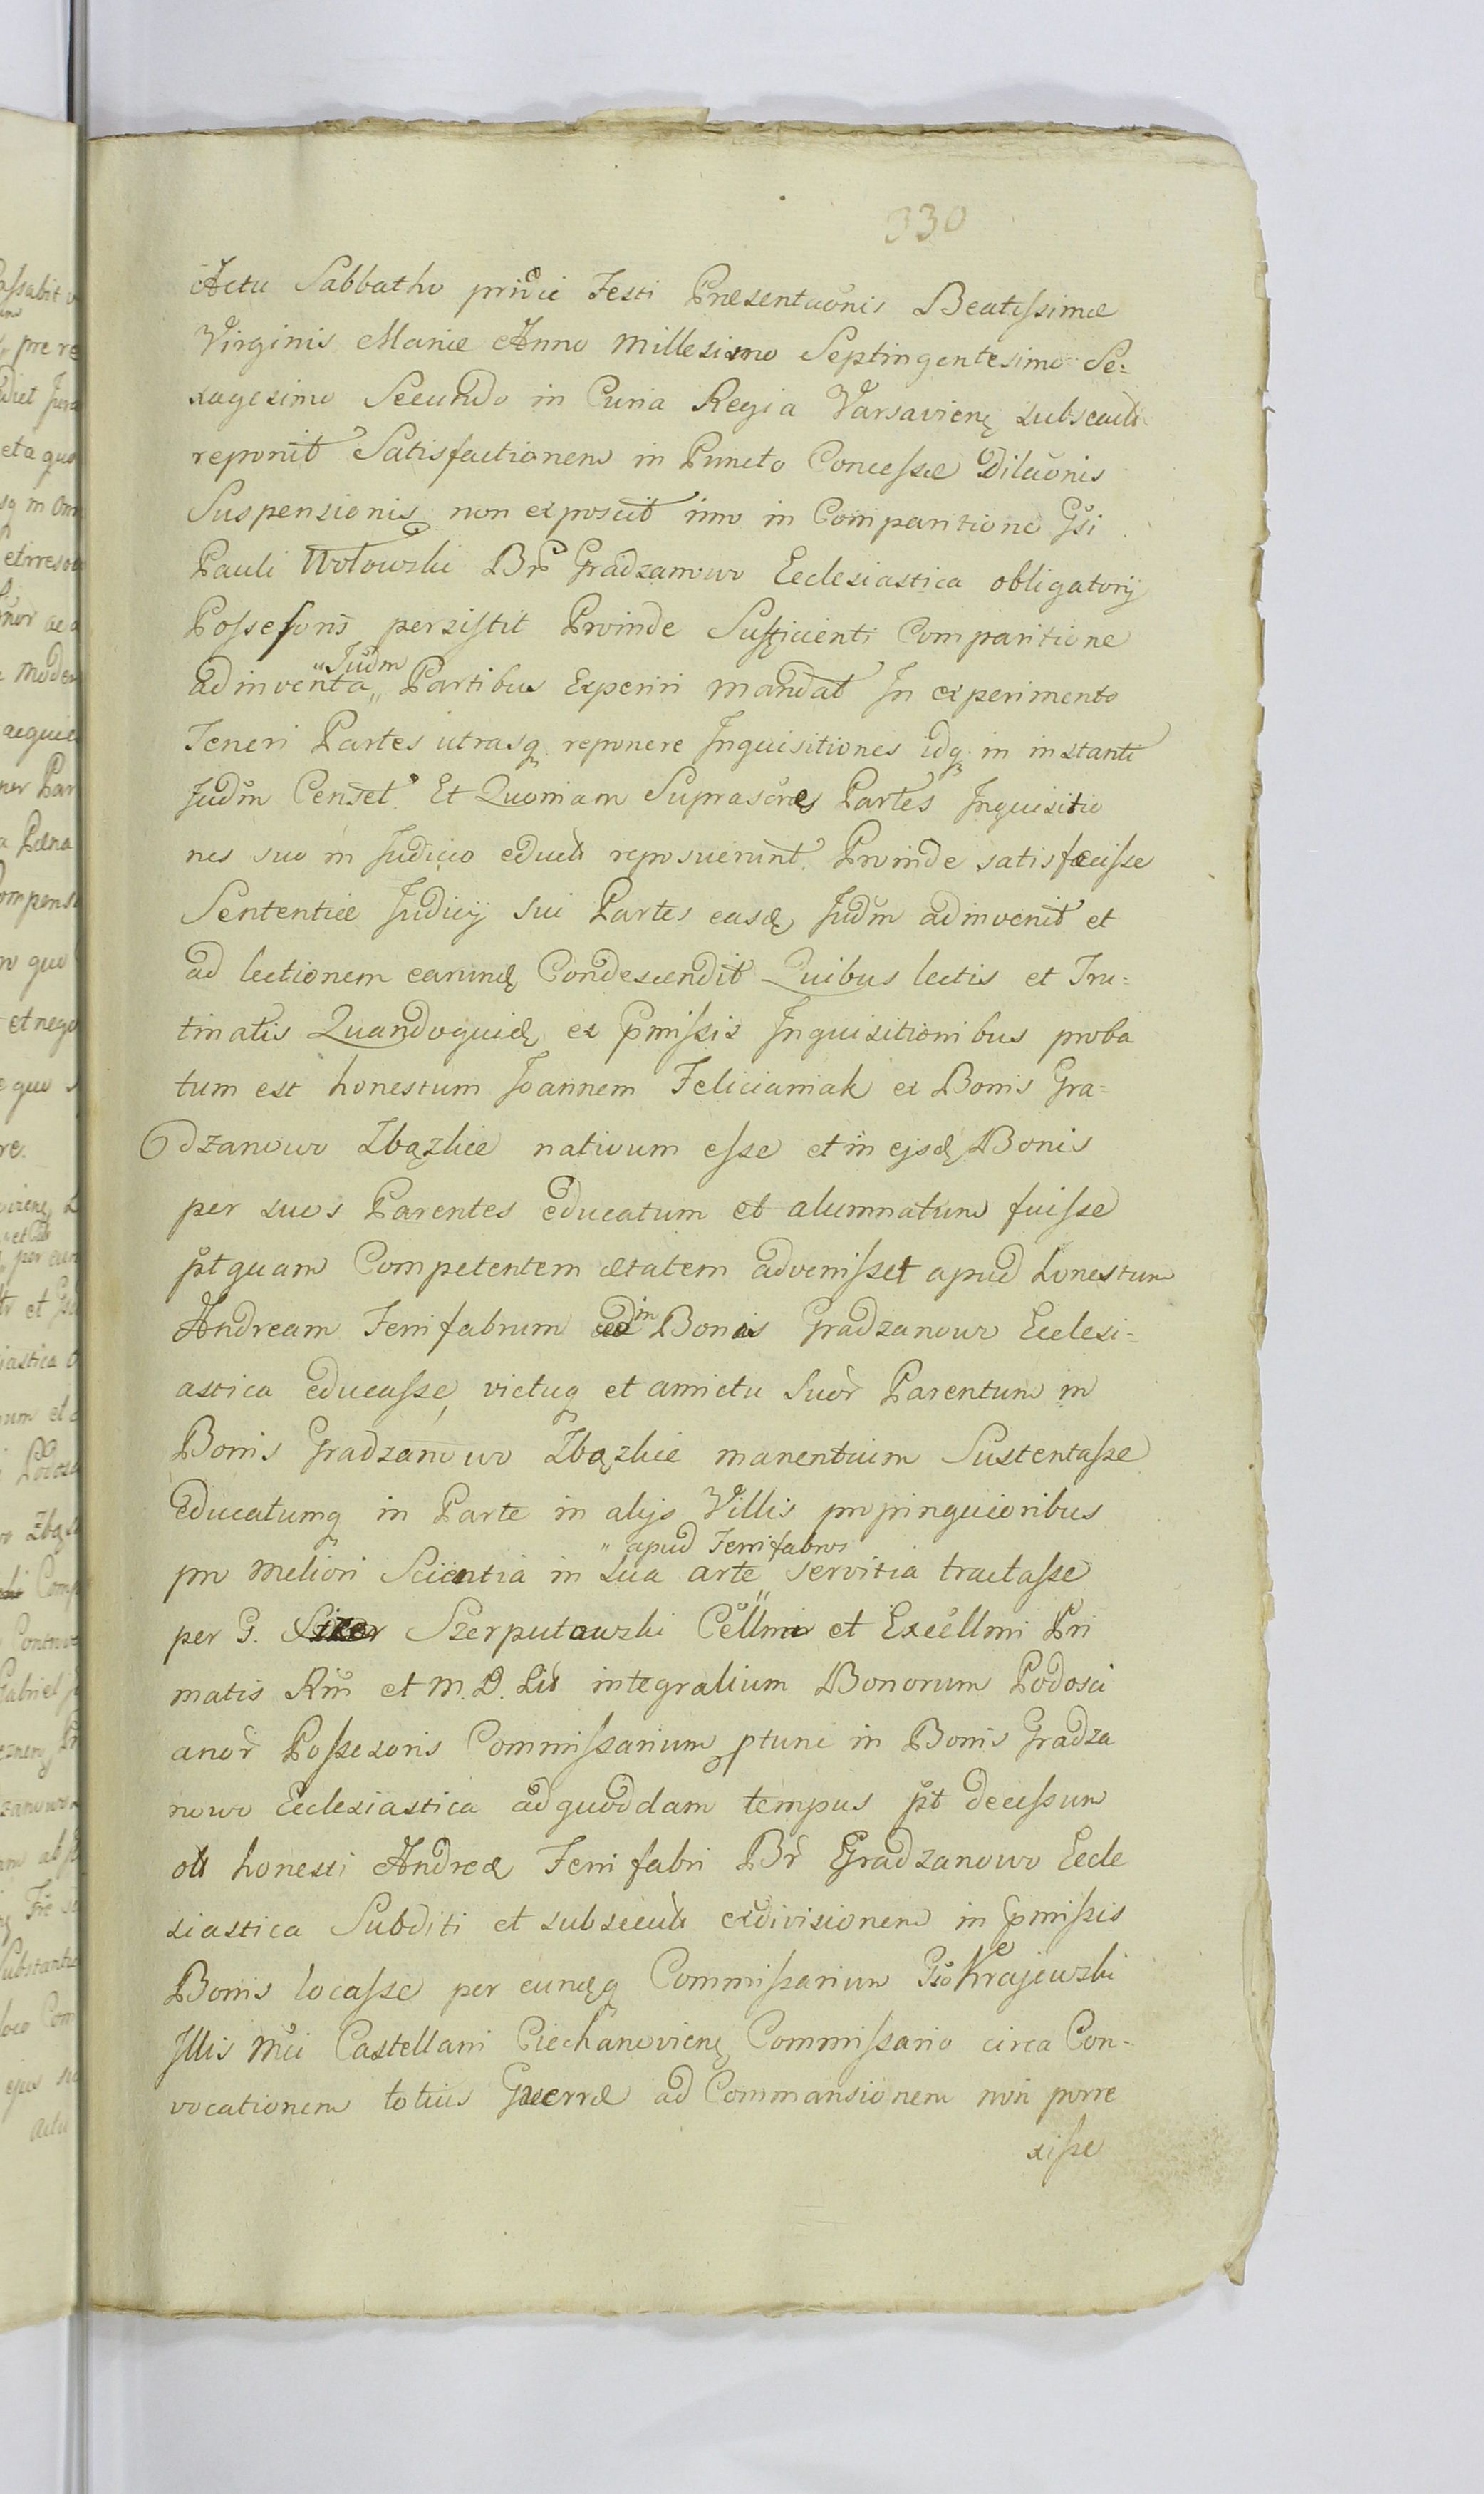 330
Actu Sabbatho pridie Festi Præsentaōnis Beatissimæ
Virginis Mariæ Anno Millesimo Septingentesimo Se=
xagesimo Secundo in Curia Regia Varsavienę subsecuti
reponit Satisfactionem in Puncto Concessæ Dilaōnis
Suspensionis non exposcit imo in Comparitione Gsi
Pauli Wołowski Br̃ Gradzanowo Ecclesiastica obligatorij
Possessoris persistit Proinde Sufficienti Comparitione
adinventa "Judm" Partibus Experiri mandat In experimento
Teneri Partes utrasq reponere Inquisitiones idq in instanti
Judm Censet. Et Quoniam Suprascræ Partes Inquisitio
nes suo in Judicio educti reposuerunt. Proinde satisfecisse
Sententiæ Judicij sui Partes easdę Judm adinvenit et
ad lectionem earundę Condescendit Quibus lectis et Tru=
tinatis Quandoquidę ex pmissis Inquisitionibus proba
tum est honestum Joannem Felicianiak ex Bonis Gra=
dzanowo Zbązkie nativum esse et in ejsdę Bonis
per suos Parentes educatum et alumnatum fuisse
ptquam Competentem ætatem advenisset apud honestum
Andream Ferrifabrum in Bonis Gradzanowo Ecclesi=
astica educasse, victuq et amictu suor Parentum in
Bonis Gradzanowo Zbązkie manentium Sustentasse
Educatumq in Parte in alijs Villis propinquioribus
pro meliori Scientia in sua arte "apud Ferrifabros" servitia tractasse
per G. Szerputowski Cellmi et Excellmi Pri
matis Rm et M. D. Lit integralium Bonorum Podosci
anor Possesoris Commissarium ptunc in Bonis Gradza
nowo Ecclesiastica ad quoddam tempus pt decessum
oli honesti Andreæ Ferrifabri Br Gradzanowo Eccle
siastica Subditi et subsecuti exdivisionem in pmissis
Bonis locasse per eundęq Commissarium Gso Krajewski
Illis Mci Castellani Ciechanovienę Commissario circa Con=
vocationem totius Guerræ ad Commansionem non porre
xisse